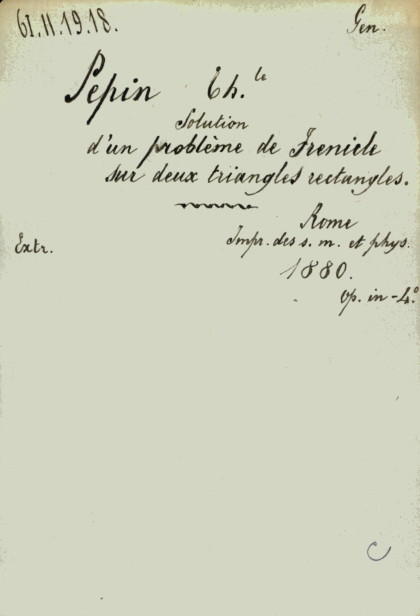 61.11.19.18.
Gen.
Pepin Th.le
Solution
d'un problème de Frenicle
sur deux triangles rectangles.
Rome
Extr.
Impr. des s. m. et phys.
1880.
Op. in-4.o
C